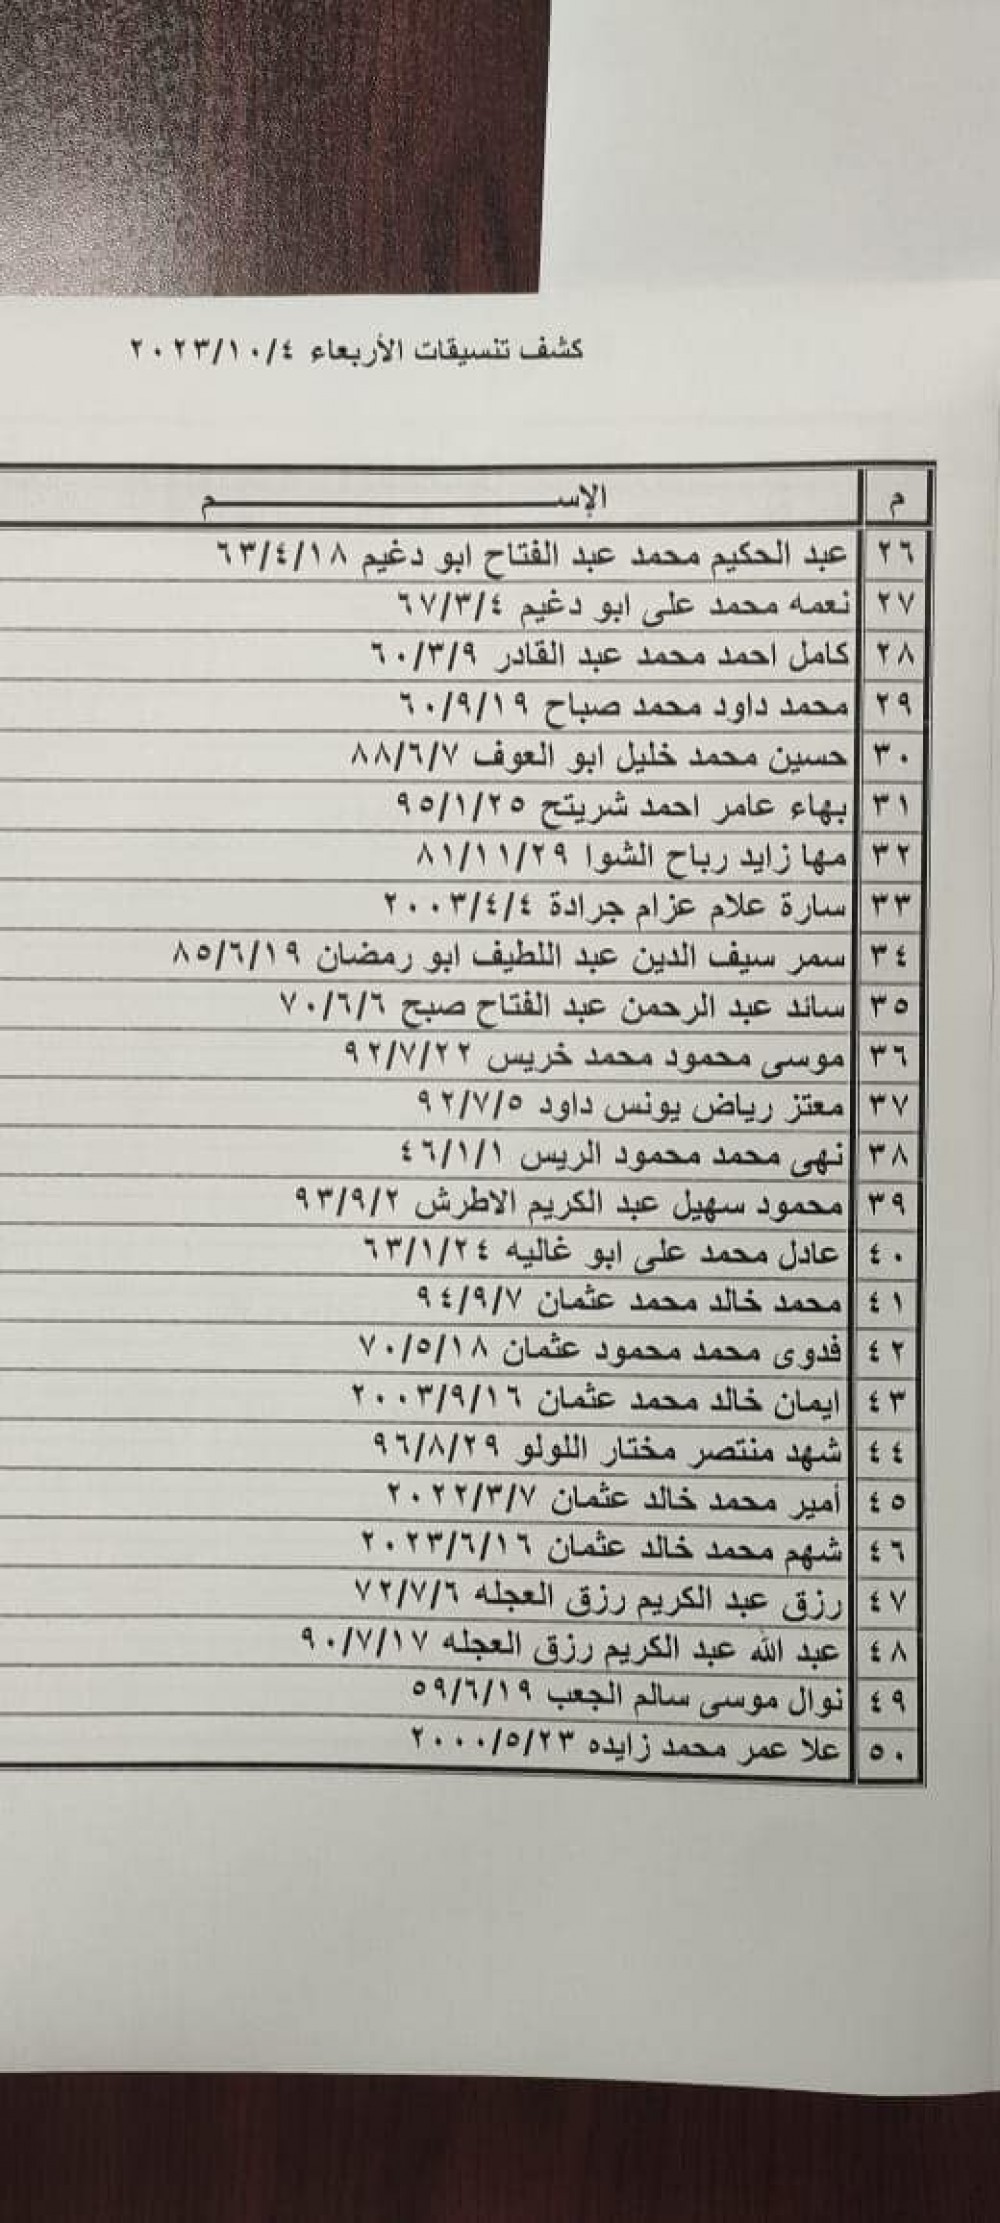 كشف تنسيقات الأربعاء ٢٠٢٣/١٠/٤
م الإســـــــــم
٢٦ عبد الحكيم محمد عبد الفتاح ابو دغيم ٦٣/٤/١٨
٢٧ نعمه محمد على ابو دغيم ٦٧/٣/٤
٢٨ كامل احمد محمد عبد القادر ٦٠/٣/٩
٢٩ محمد داود محمد صباح ٦٠/٩/١٩
٣٠ حسين محمد خليل ابو العوف ٨٨/٦/٧
٣١ بهاء عامر احمد شريتح ٩٥/١/٢٥
٣٢ مها زايد رباح الشوا ٨١/١١/٢٩
٣٣ سارة علام عزام جرادة ٢٠٠٣/٤/٤
٣٤ سمر سيف الدين عبد اللطيف ابو رمضان ٨٥/٦/١٩
٣٥ سائد عبد الرحمن عبد الفتاح صبح ٧٠/٦/٦
٣٦ موسى محمود محمد خريس ٩٢/٧/٢٢
٣٧ معتز رياض يونس داود ٩٢/٧/٥
٣٨ نهى محمد محمود الريس ٤٦/١/١
٣٩ محمود سهيل عبد الكريم الاطرش ٩٣/٩/٢
٤٠ عادل محمد على ابو غاليه ٦٣/١/٢٤
٤١ محمد خالد محمد عثمان ٩٤/٩/٧
٤٢ فدوى محمد محمود عثمان ٧٠/٥/١٨
٤٣ ايمان خالد محمد عثمان ٢٠٠٣/٩/١٦
٤٤ شهد منتصر مختار اللولو ٩٦/٨/٢٩
٤٥ أمير محمد خالد عثمان ٢٠٢٢/٣/٧
٤٦ شهم محمد خالد عثمان ٢٠٢٣/٦/١٦
٤٧ رزق عبد الكريم رزق العجله ٧٢/٧/٦
٤٨ عبد الله عبد الكريم رزق العجله ٩٠/٧/١٧
٤٩ نوال موسى سالم الجعب ٥٩/٦/١٩
٥٠ علا عمر محمد زايده ٢٠٠٠/٥/٢٣